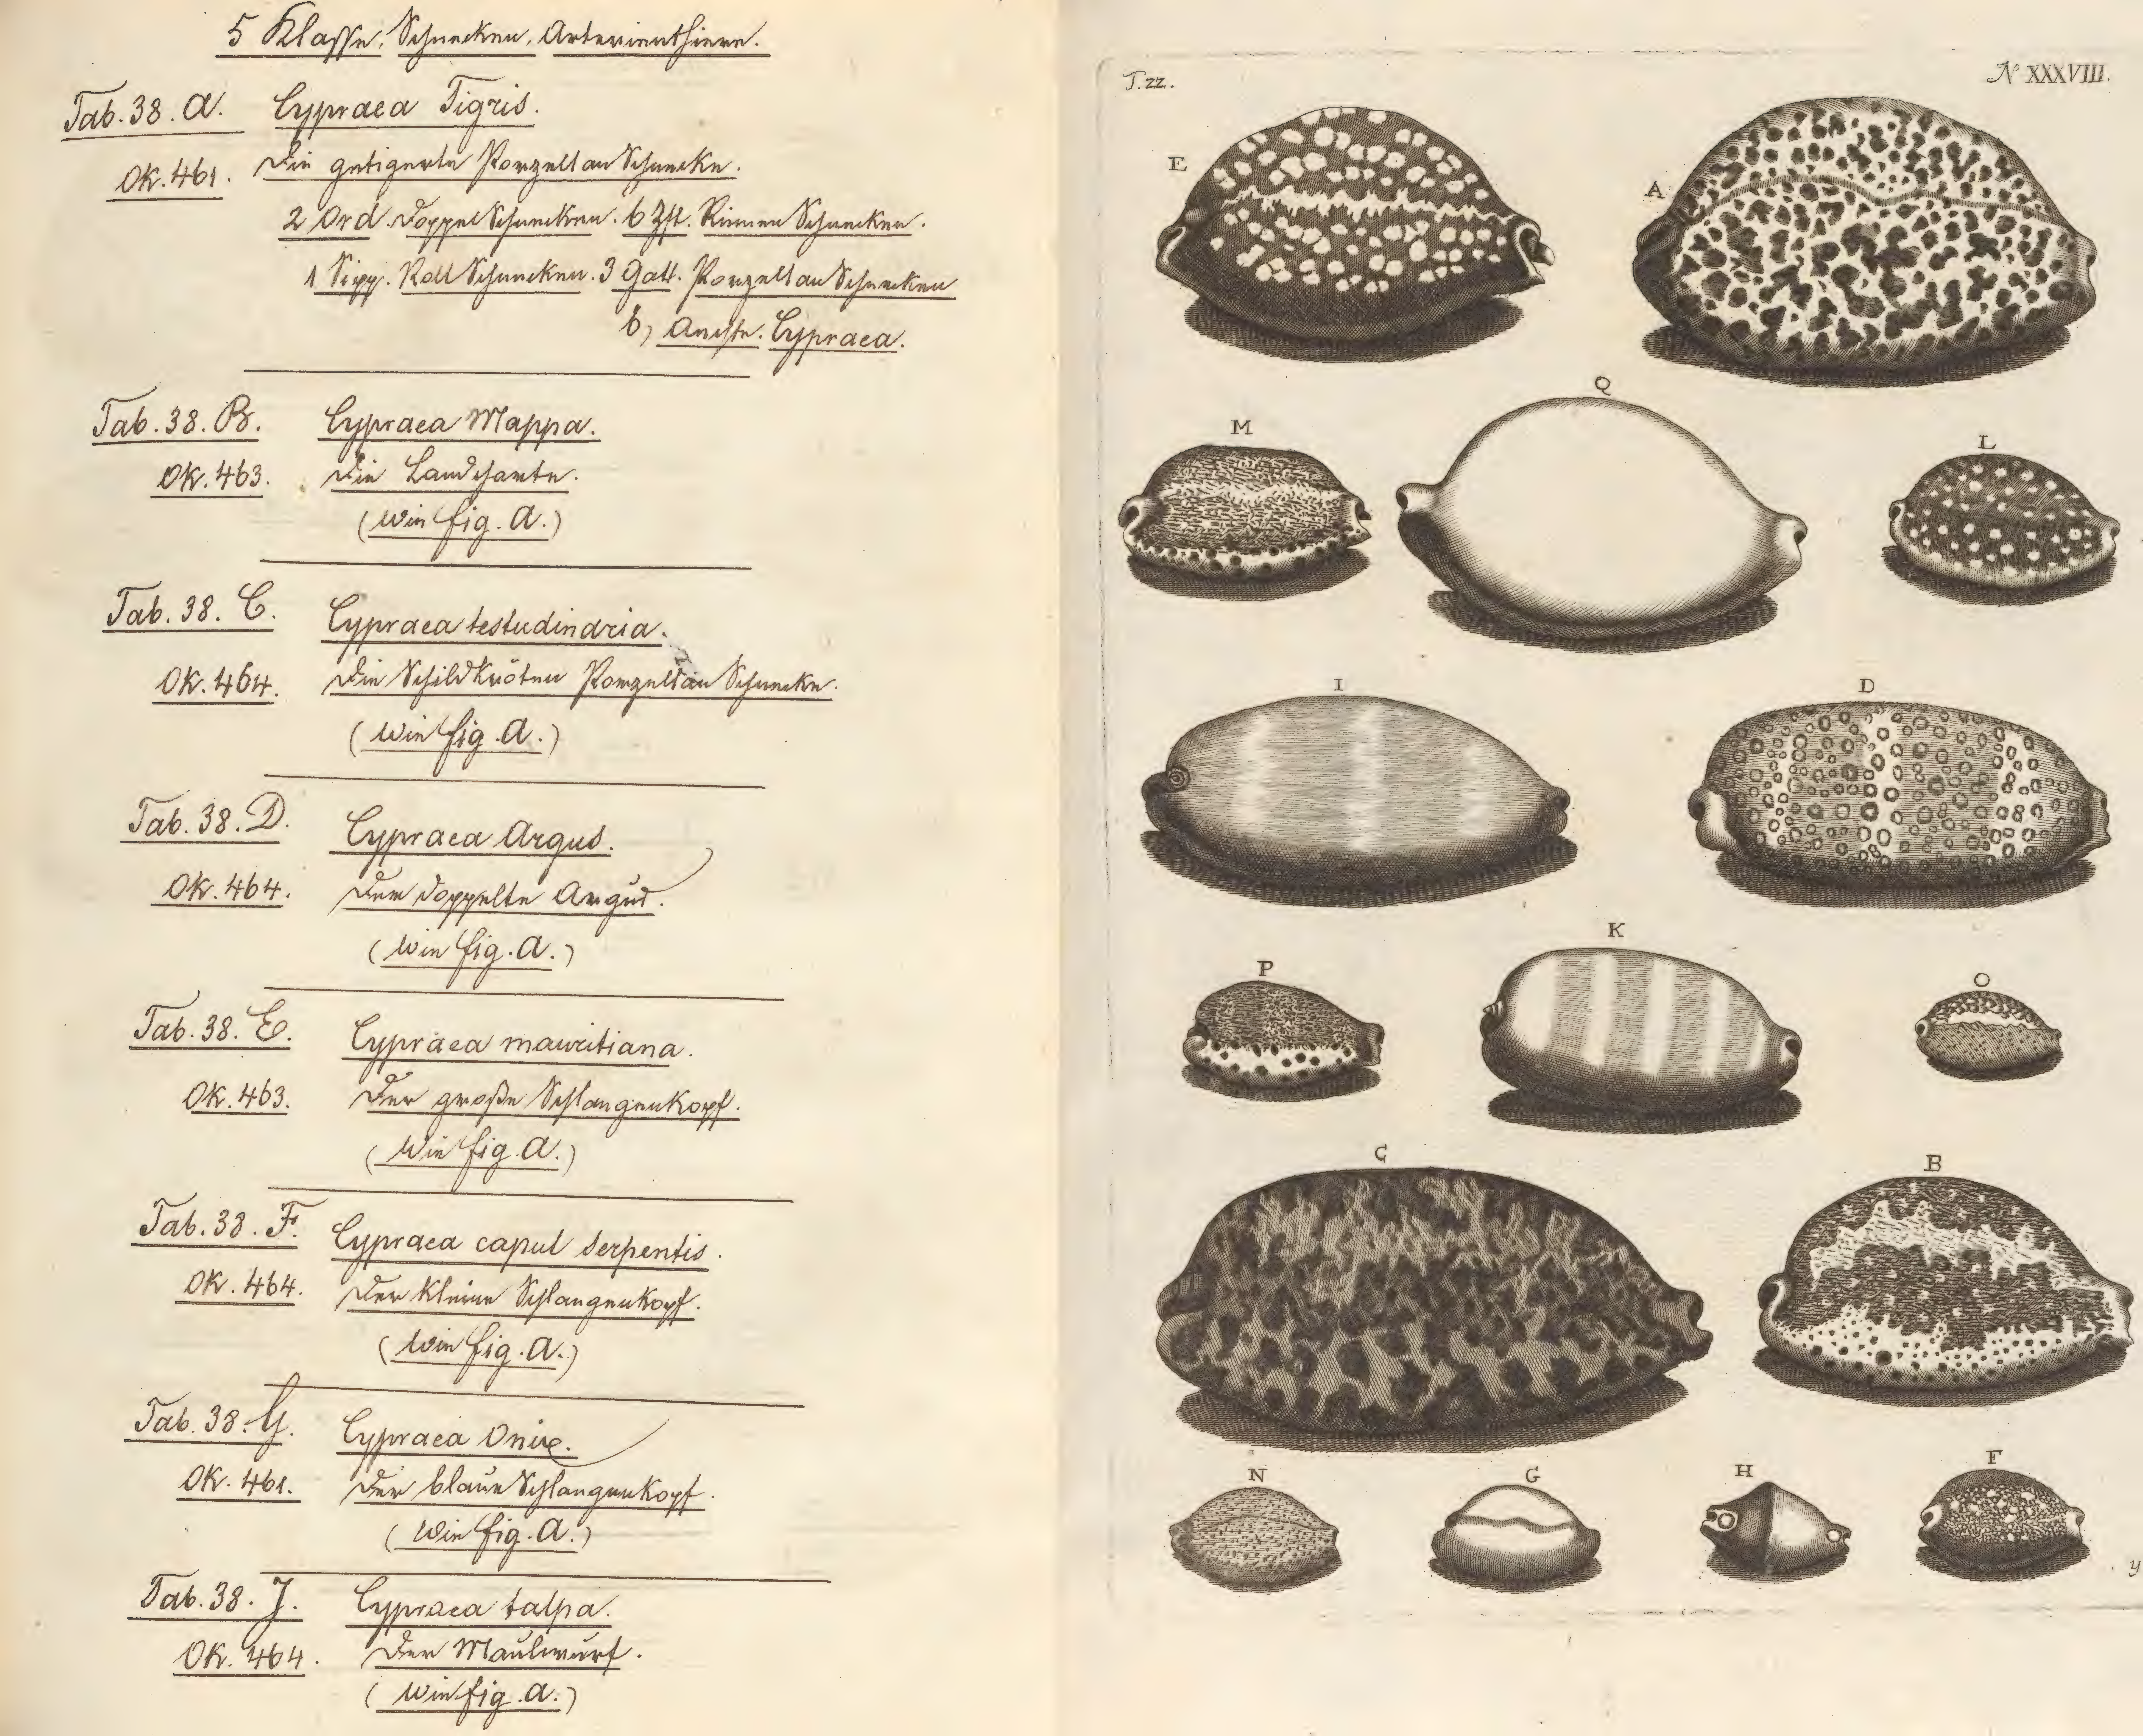 5 Klasse. Schnecken. Arterienthiere.
Tab. 38. A. Cypraea Tigris.
Ok. 461. Die getigerte Porzellan Schnecke.
2 Ord. Doppel Schnecken. 6 Zft. Rinnen Schnecken.
1 Sipp. Roll Schnecken. 3 Gatt. Porzellan Schnecken
b, Aechte. Cypraea.
Tab. 38. B. Cypraea Mappa.
Ok. 463. Die Landcharte.
(wie fig. A.)
Tab. 38. C. Cypraea testudinaria.
Ok. 464. Die Schildkröten Porzellan Schnecke.
(wie fig. A.)
Tab. 38. D. Cypraea Argus.
Ok. 464. Der doppelte Argus.
(wie fig. A.)
Tab. 38. E. Cypraea mauritiana.
Ok. 463. Der große Schlangenkopf.
(wie fig. A.)
Tab. 38. F. Cypraea caput serpentis.
Ok. 464. Der kleine Schlangenkopf.
(wie fig. A.)
Tab. 38. G. Cypraea Onix.
Ok. 461. Der blaue Schlangenkopf.
(wie fig. A.)
Tab. 38. J. Cypraea talpa.
Ok. 464. Der Maulwurf.
(wie fig. A.)
T. zz. N XXXVIII.
E A
Q
M L
I D
K
P O
C B
N G H F
y